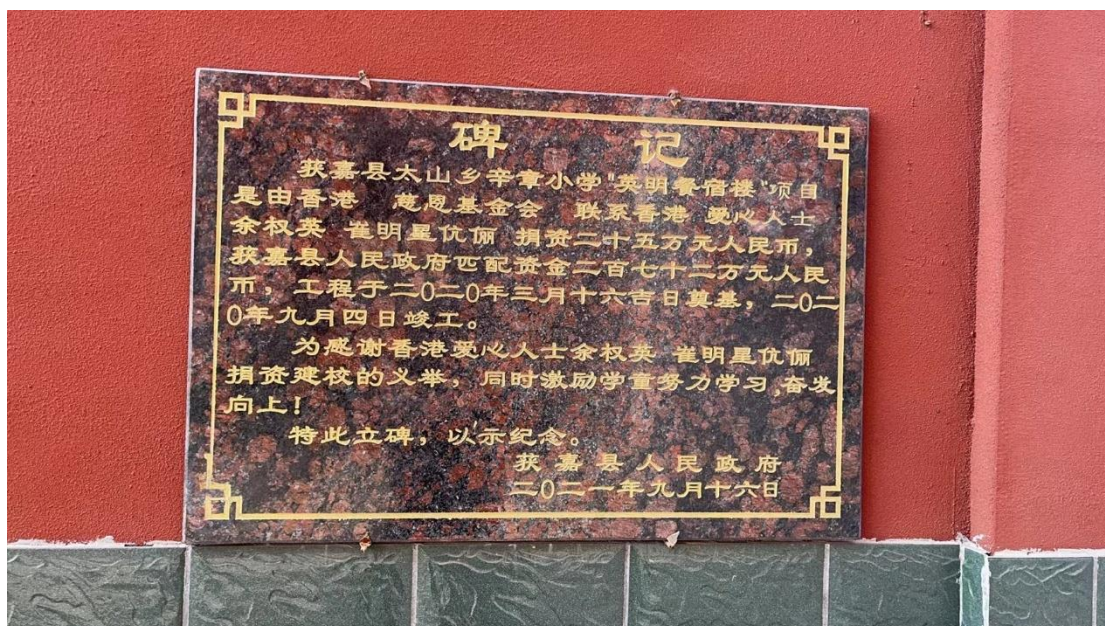 碑 记
获嘉县太山乡辛章小学"英明餐宿楼"项目
是由香港 慈恩基金会 联系香港 爱心人士
余权英 崔明星伉俪 捐资二十五万元人民币，
获嘉县人民政府匹配资金二百七十二万元人民
币，工程于二0二0年三月十六吉日奠基，二0二
0年九月四日竣工。
为感谢香港爱心人士余权英 崔明星伉俪
捐资建校的义举，同时激励学童努力学习,奋发
向上！
特此立碑，以示纪念。
获嘉县人民政府
二0二一年九月十六日